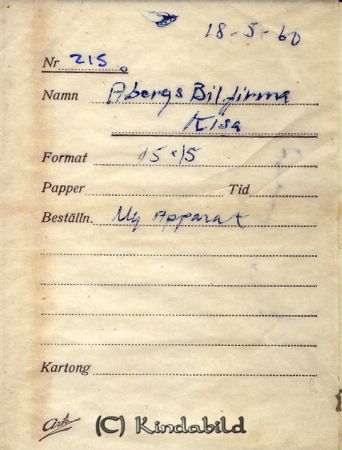 18-5-60
Nr 215
Namn Abergs Bilfirma
Kisa
Format 15×15
Papper Tid
Beställn. Ny Apparat
Kartong
Ark (C) Kindabild